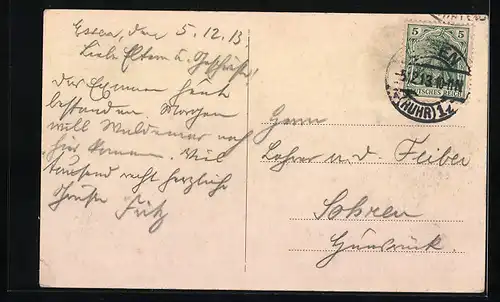 Essen, den 5.12.13
Liebe Eltern u. Geschwister!
Das Examen heute
bestanden. Morgen
will Waldemar nach
hier kommen. Viel
tausend recht herzliche
Grüße Fritz
Herrn
Lehrer u. d. Fliber
Sohren
Hunsrück.
5
5
DEUTSCHES REICH
5.12.13
(RUHR) 1